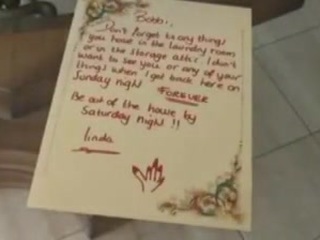 Bobbi,
Don't forget to any things
you have in the laundry room
or in the storage attic. I don't
want to see you or any of your
things when I get back here on
Sunday night FOREVER
Be out of the house by
Saturday night !!
linda